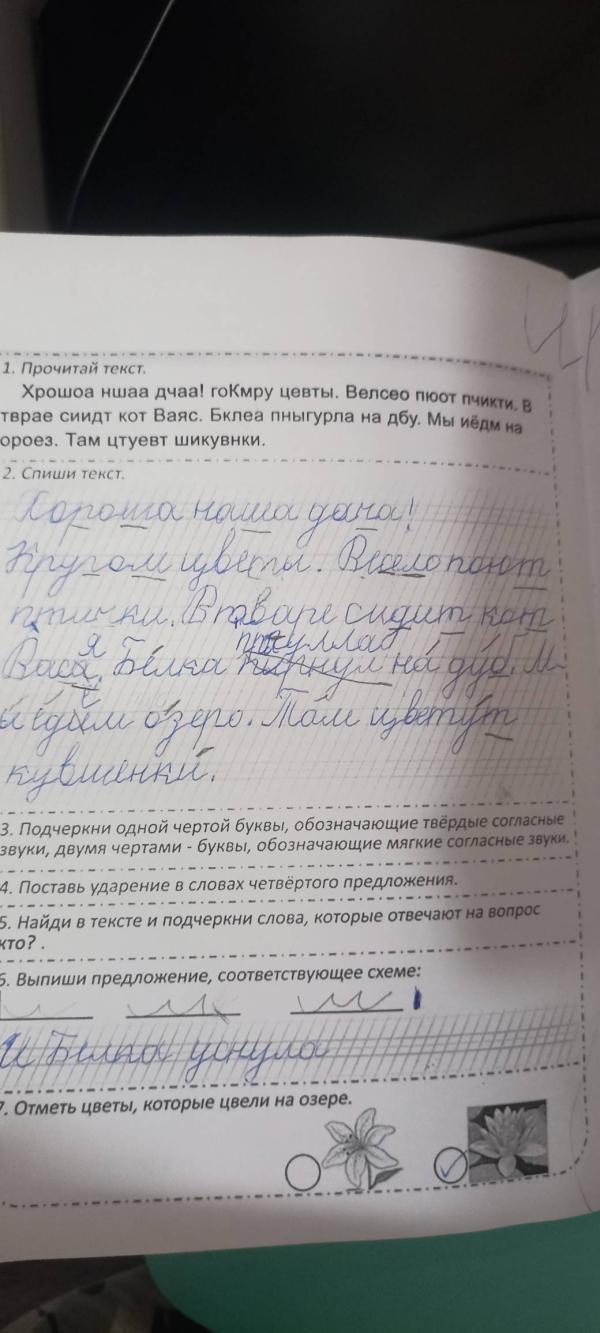 1. Прочитай текст.
Хрошоа ншаа дчаа! гоКмру цевты. Велсео пюот пчикти. В
тврае сиидт кот Ваяс. Бклеа пныгурла на дбу. Мы иёдм на
ороез. Там цтуевт шикувнки.
2. Спиши текст.
Хороша наша дача!
Кругом цветы. Весело поют
птички. В тваре сидит кот
Вася. Белка на дуб. М-
ы озеро. Там цветут
кувшенки.
3. Подчеркни одной чертой буквы, обозначающие твёрдые согласные
звуки, двумя чертами - буквы, обозначающие мягкие согласные звуки.
4. Поставь ударение в словах четвёртого предложения.
5. Найди в тексте и подчеркни слова, которые отвечают на вопрос
кто? .
6. Выпиши предложение, соответствующее схеме:
Белка уснула
7. Отметь цветы, которые цвели на озере.